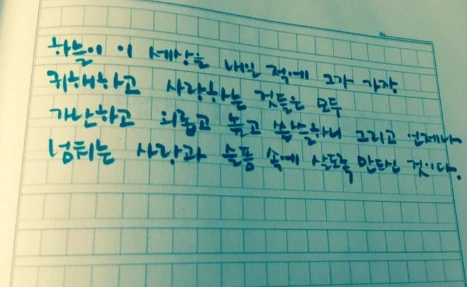 하늘이 이 세상을 내일 적에 그가 가장
귀해하고 사랑하는 것들은 모두
가난하고 외롭고 높고 쓸쓸하니 그리고 언제나
넘치는 사랑과 슬픔 속에 살도록 만드신 것이다.